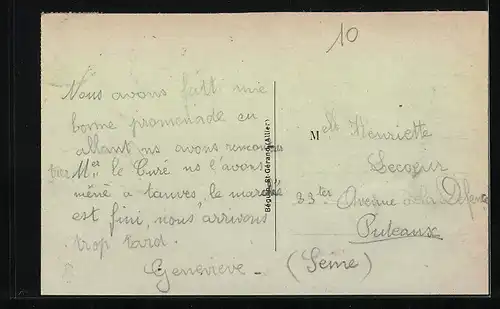 10
Nous avons fait une
bonne promenade en
allant ns avons rencontrer
Mr le Curé ns l'avons
mené a tauves, le marché
est fini, nous arrivons
trop tard.
Geneviève -
Béguin, St-Gérand (Allier)
Melle Henriette
Lecoeur
33ter Avenue de la Défense
Puteaux
(Seine)